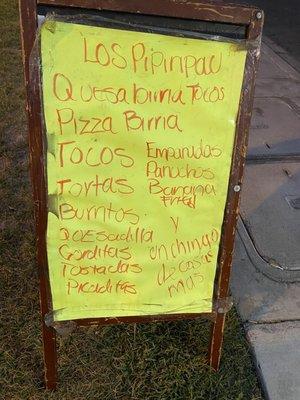 Los Pipinpau
Quesa birria Tacos
Pizza Birria
Tacos
Tortas
Burritos
Quesadilla
Gorditas
Tostadas
Picaditas
Empanadas
Panuchos
Banana
Frita
y
un chingo
de cositas
mas